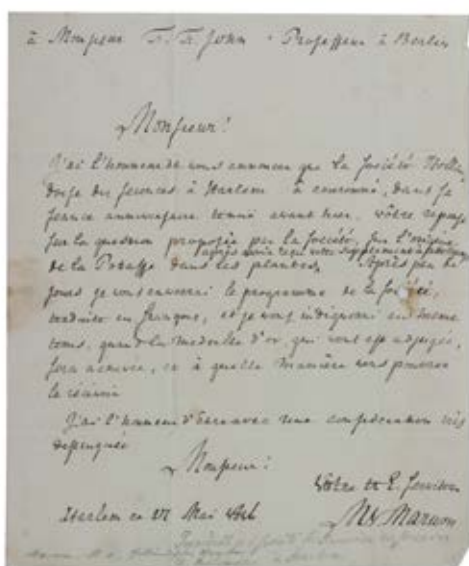 à Monsieur Fr. Fr. John . Professeur à Berlin
Monsieur!
J'ai l'honneur de vous annoncer que la Société Hollan
doise des sciences à Harlem à couronné, dans sa
seance anniversaire tenuë avant hier, vôtre reponse
sur la question proposée par la Société, sur l'origine
de la Potasse dans les plantes, Après peu de
jours je vous enverrai le programme de la Société,
traduite en français, et je vous indiquerai en meme
tems, quand la medaille d'or, qui vous est adjugée,
sera achevée, et à quelle manière vous pouvez
la recevoir
J'ai l'honneur d'être avec une consideration très
distinguée
Monsieur!
Vôtre tr. L. Serviteur
Harlem ce Mai